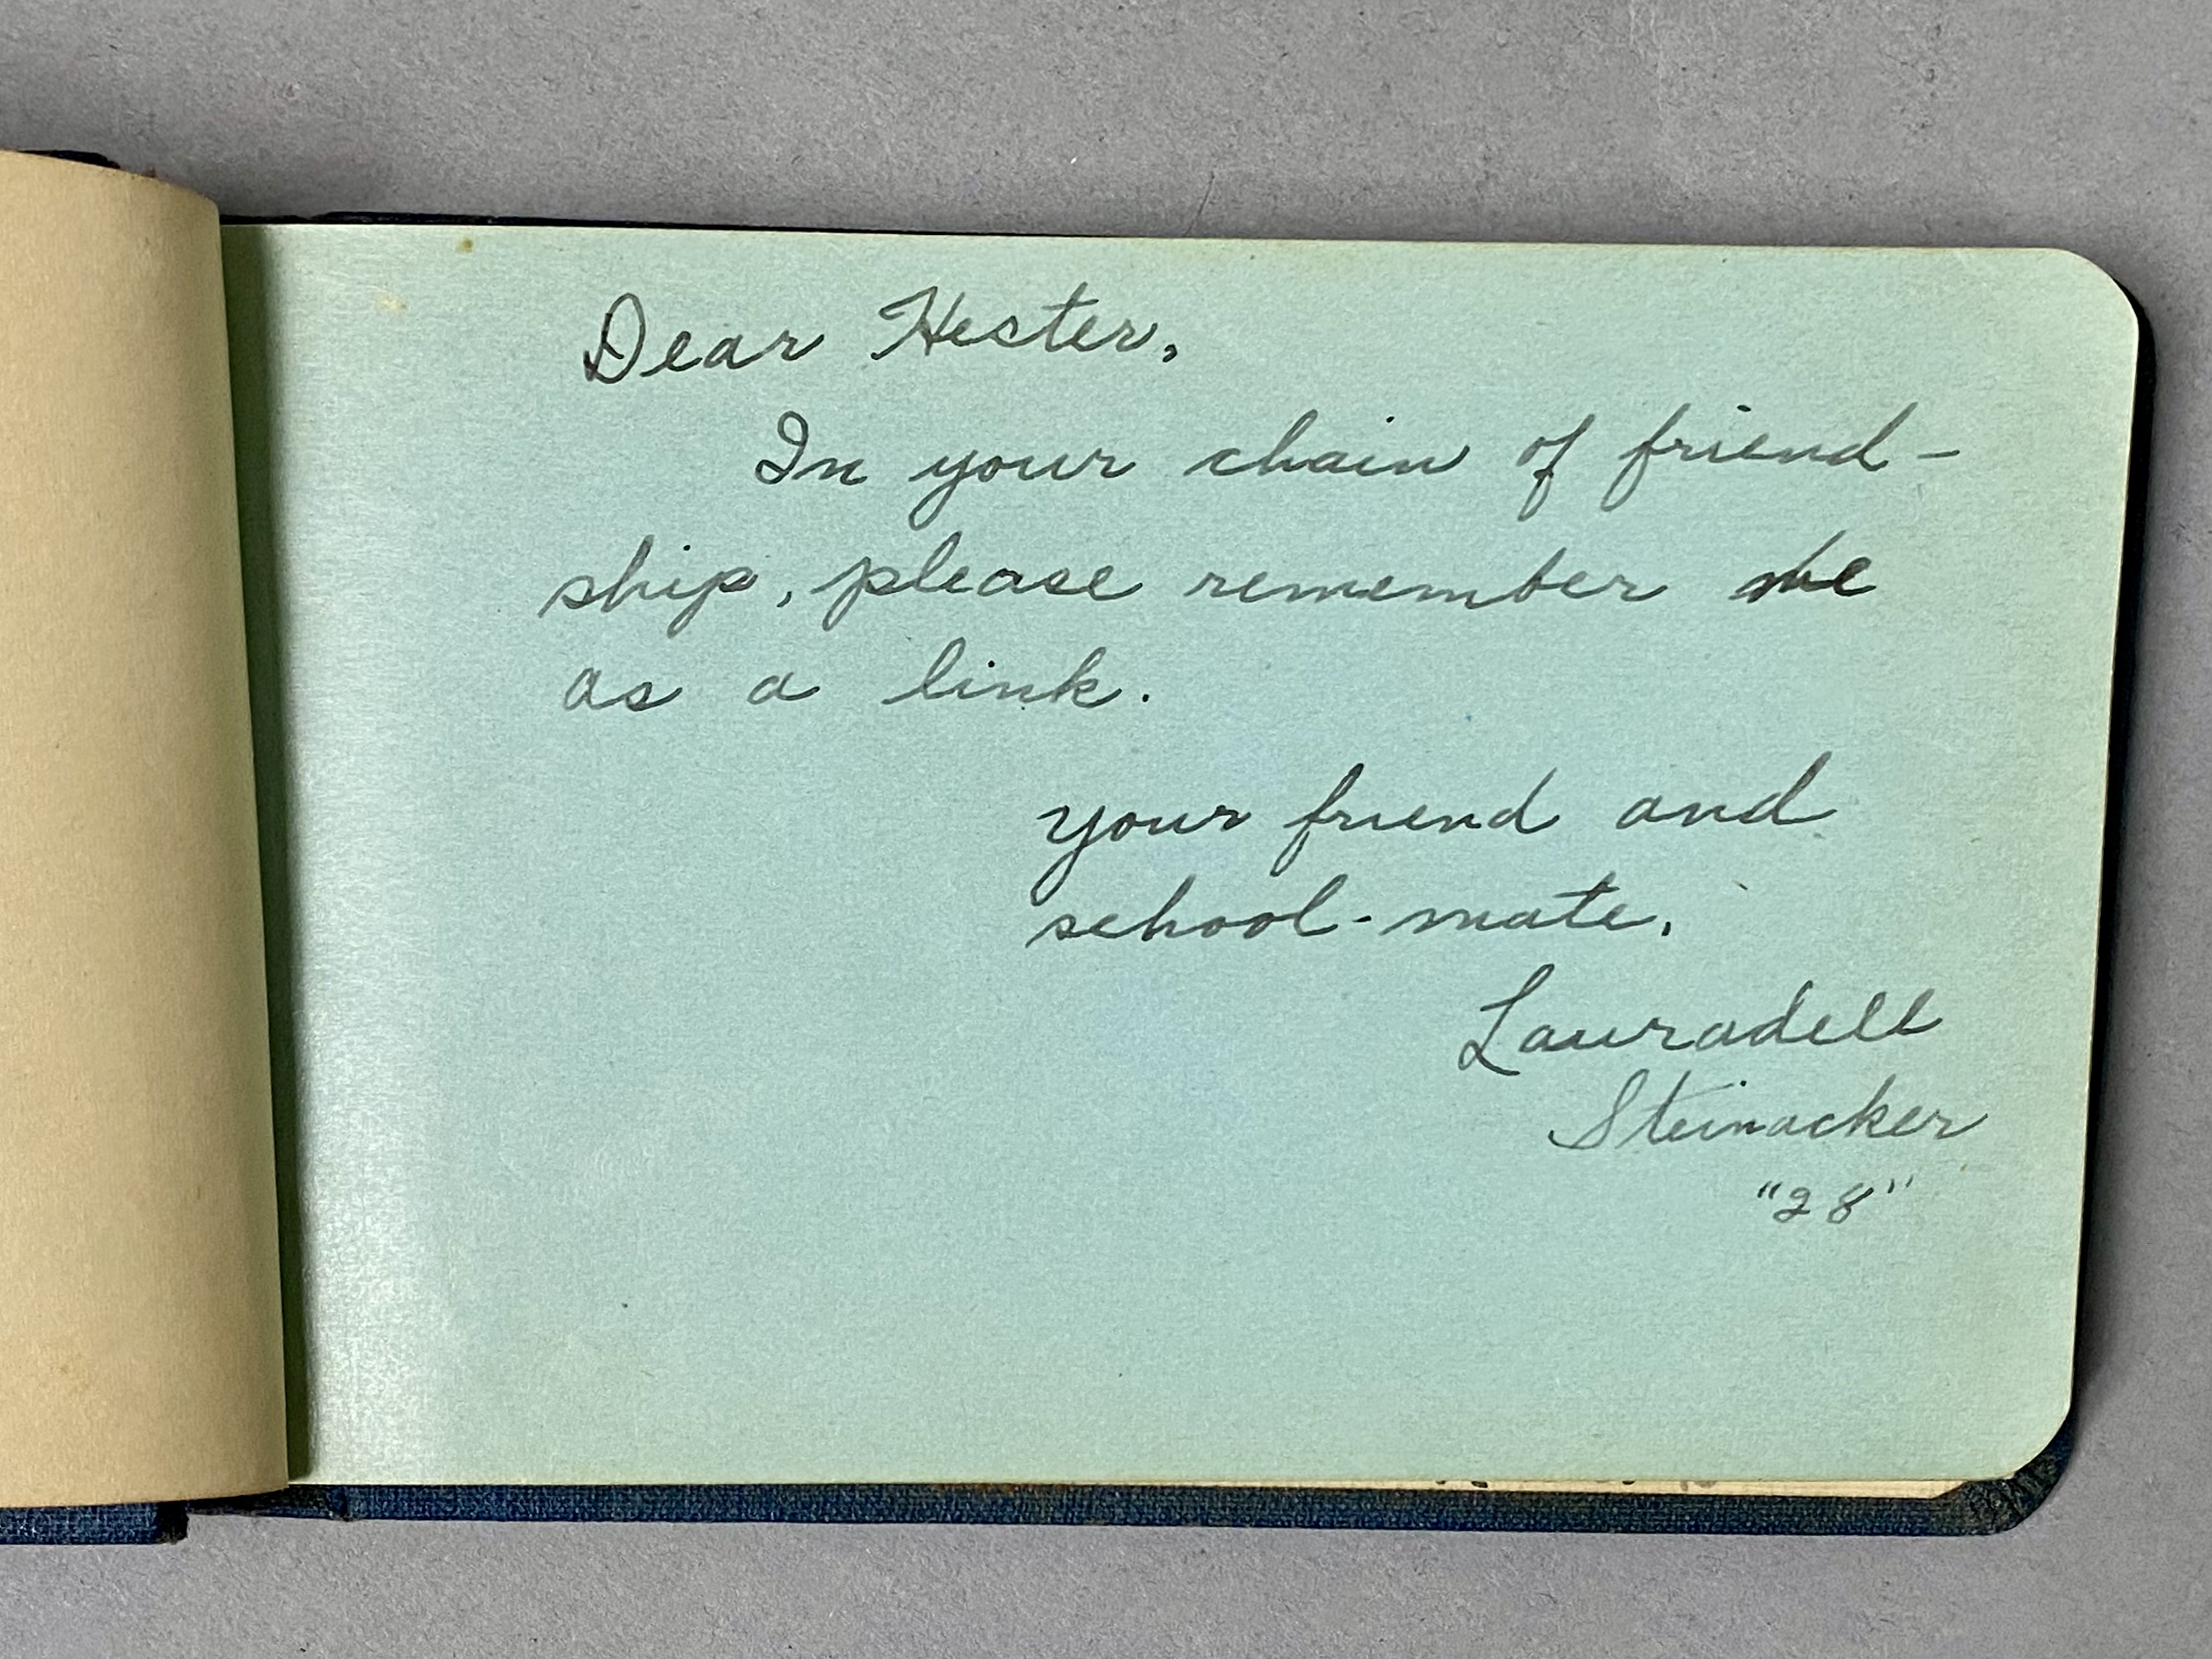 Dear Hester,
In your chain of friend-
ship, please remember me
as a link.
your friend and
school-mate,
Lauradell
Steinacker
"28"